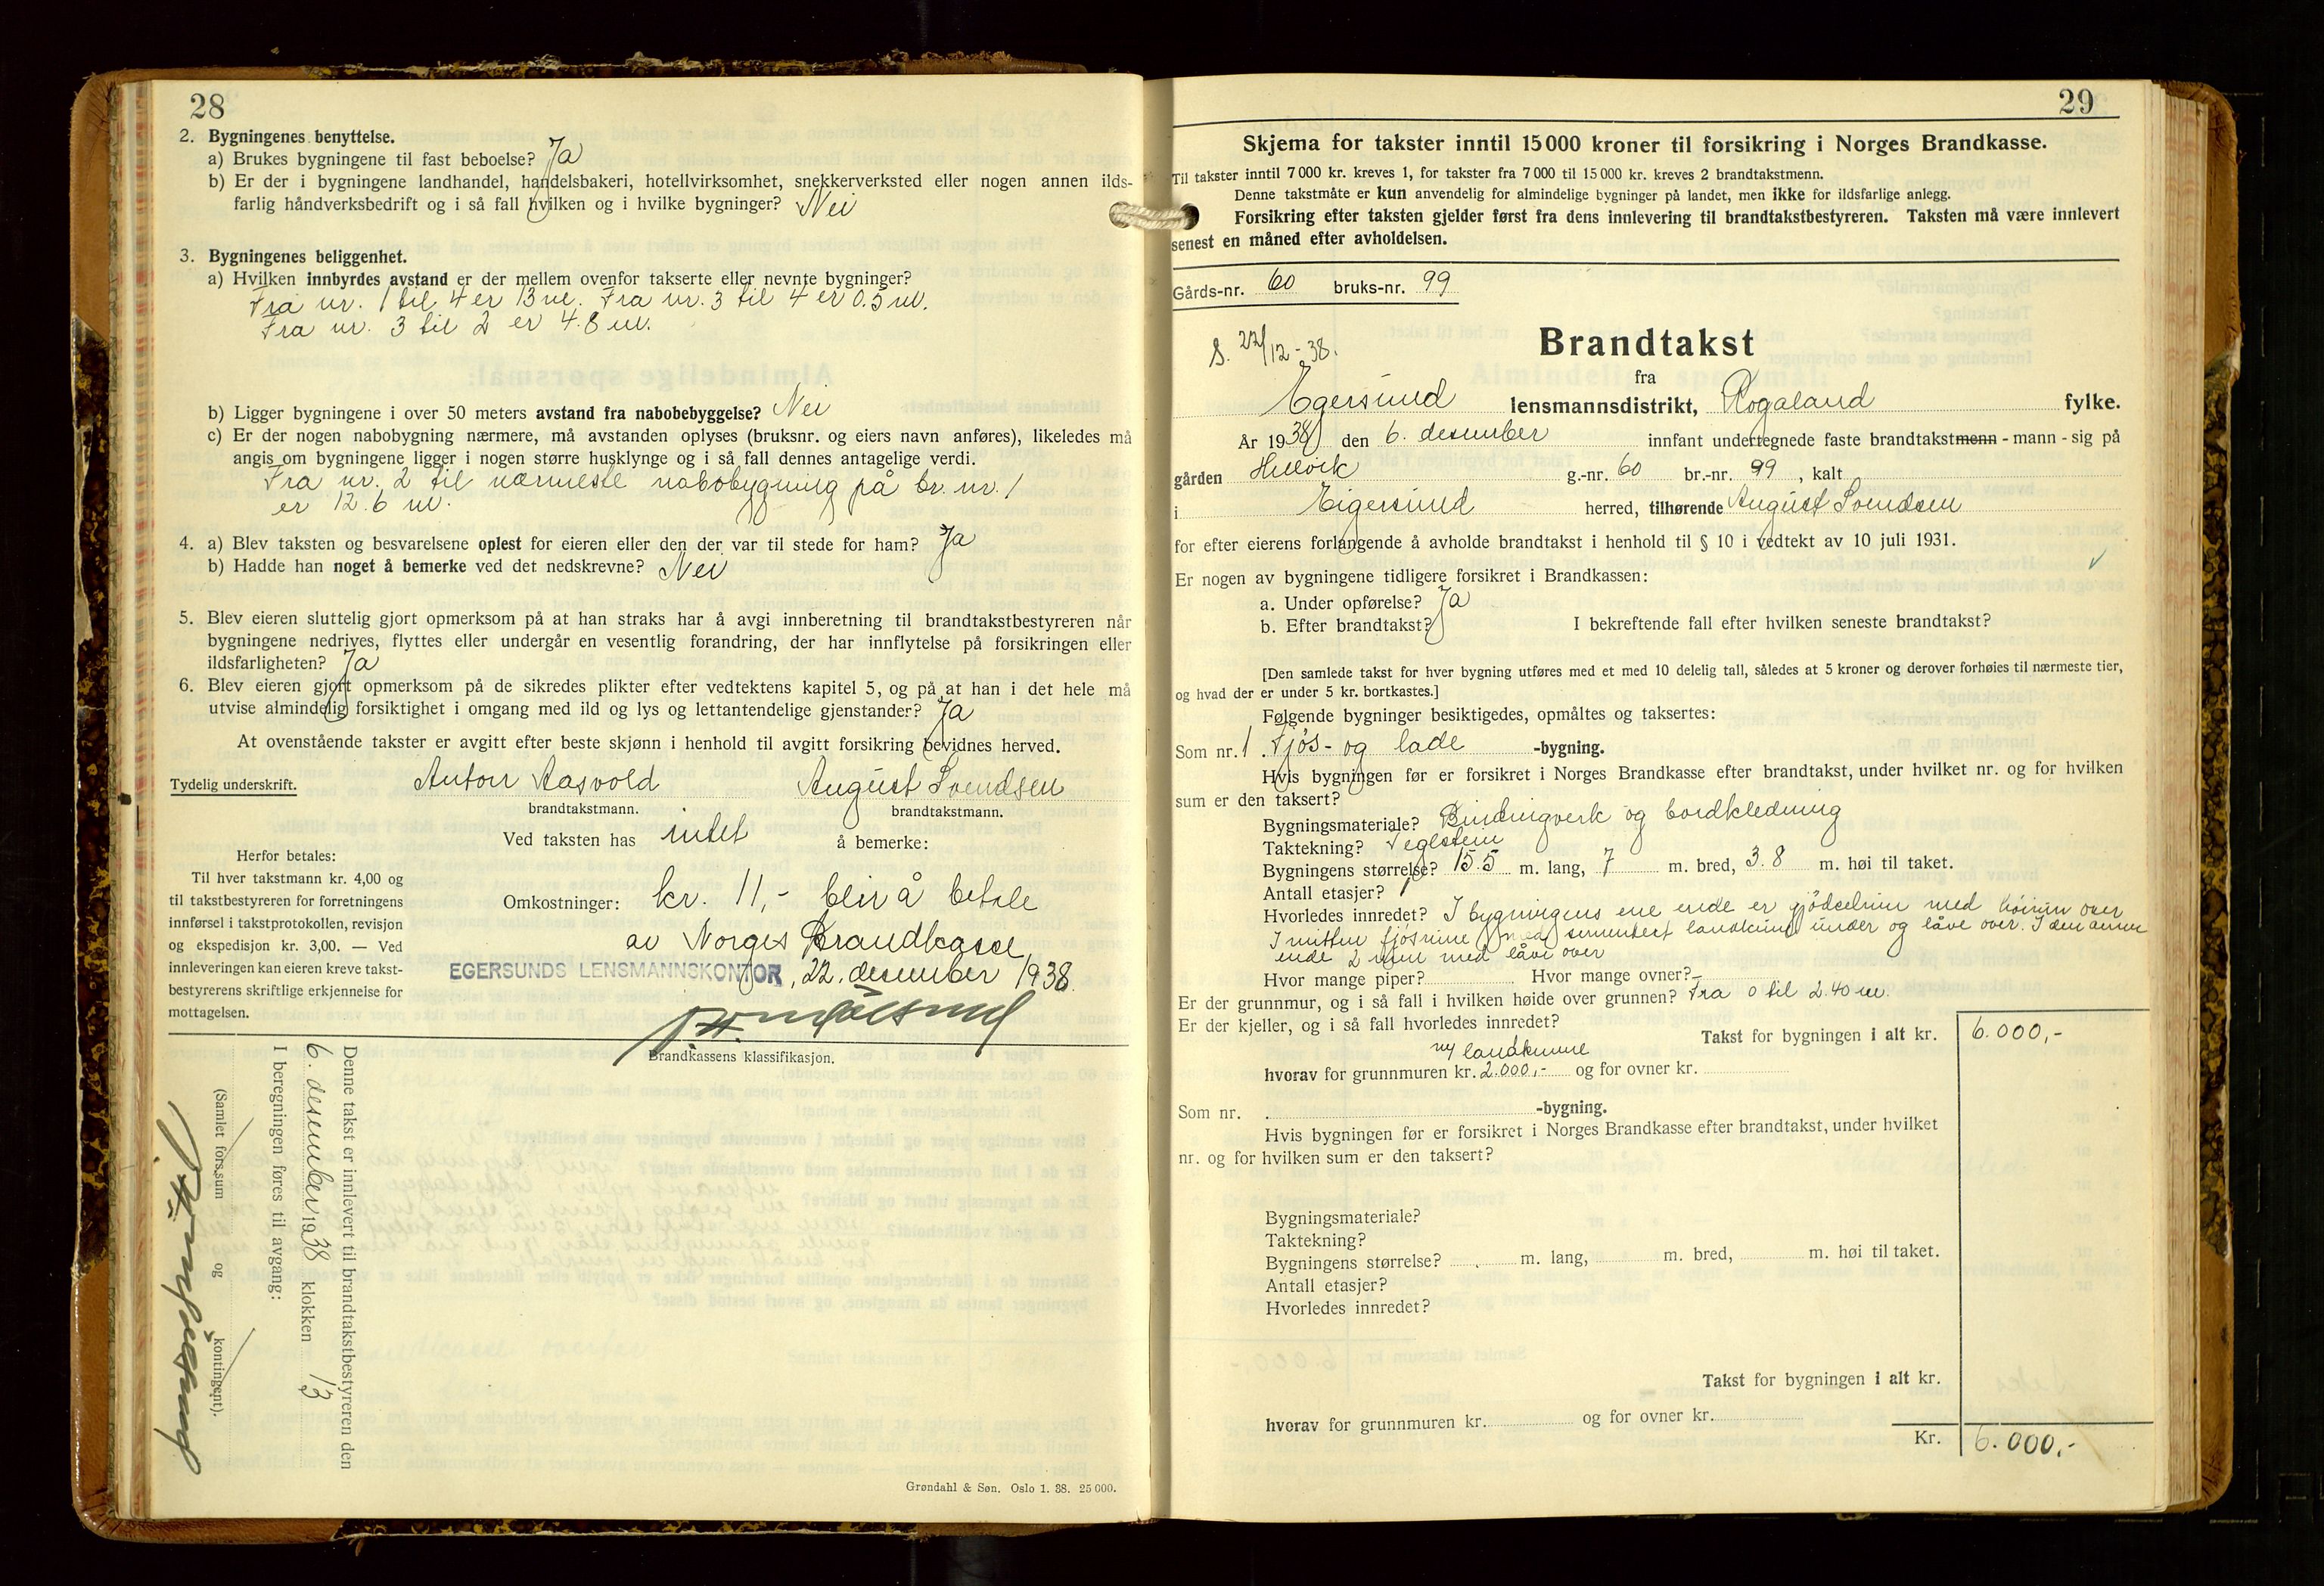 28
2. Bygningenes benyttelse.
a) Brukes bygningene til fast beboelse? Ja
b) Er der i bygningene landhandel, handelsbakeri, hotellvirksomhet, snekkerverksted eller nogen annen ilds-
farlig håndverksbedrift og i så fall hvilken og i hvilke bygninger? Nei
3. Bygningenes beliggenhet.
a) Hvilken innbyrdes avstand er der mellem ovenfor takserte eller nevnte bygninger?
Fra nr. 1 til 4 er 13 m. Fra nr. 3 til 4 er 0.5 m.
Fra nr. 3 til 2 er 4.8 m.
b) Ligger bygningene i over 50 meters avstand fra nabobebyggelse? Nei
c) Er der nogen nabobygning nærmere, må avstanden oplyses (bruksnr. og eiers navn anføres), likeledes må
angis om bygningene ligger i nogen større husklynge og i så fall dennes antagelige verdi.
Fra nr. 2 til nærmeste nabobygning på br. nr. 1
er 12.6 m.
4. a) Blev taksten og besvarelsene oplest for eieren eller den der var til stede for ham? Ja
b) Hadde han noget å bemerke ved det nedskrevne? Nei
5. Blev eieren sluttelig gjort opmerksom på at han straks har å avgi innberetning til brandtakstbestyreren når
bygningene nedrives, flyttes eller undergår en vesentlig forandring, der har innflytelse på forsikringen eller
ildsfarligheten? Ja
6. Blev eieren gjort opmerksom på de sikredes plikter efter vedtektens kapitel 5, og på at han i det hele må
utvise almindelig forsiktighet i omgang med ild og lys og lettantendelige gjenstander? Ja
At ovenstående takster er avgitt efter beste skjønn i henhold til avgitt forsikring bevidnes herved.
Tydelig underskrift. Anton Aasvold August Svendsen
brandtakstmann. brandtakstmann.
Ved taksten has intet å bemerke:
Herfor betales:
Til hver takstmann kr. 4,00 og
til takstbestyreren for forretningens
innførsel i takstprotokollen, revisjon
og ekspedisjon kr. 3,00. — Ved
innleveringen kan eieren kreve takst-
bestyrerens skriftlige erkjennelse for
mottagelsen.
Omkostninger: kr. 11,- blir å betale
av Norges Brandkasse
EGERSUNDS LENSMANNSKONTOR, 22. desember 1938.
Brandkassens klassifikasjon.
Denne takst er innlevert til brandtakstbestyreren den
6. desember 1938 klokken 13
I beregningen føres til avgang:
(Samlet fors.sum og kontingent).
Grøndahl & Søn. Oslo 1. 38. 25 000.
29
Skjema for takster inntil 15 000 kroner til forsikring i Norges Brandkasse.
Til takster inntil 7 000 kr. kreves 1, for takster fra 7 000 til 15 000 kr. kreves 2 brandtakstmenn.
Denne takstmåte er kun anvendelig for almindelige bygninger på landet, men ikke for ildsfarlige anlegg.
Forsikring efter taksten gjelder først fra dens innlevering til brandtakstbestyreren. Taksten må være innlevert
senest en måned efter avholdelsen.
Gårds-nr. 60 bruks-nr. 99
S. 22/12-38.
Brandtakst
fra
Egersund lensmannsdistrikt, Rogaland fylke.
År 1938 den 6. desember innfant undertegnede faste brandtakstmenn - mann - sig på
gården Hellvik g.-nr. 60 br.-nr. 99, kalt
i Eigersund herred, tilhørende August Svendsen
for efter eierens forlangende å avholde brandtakst i henhold til § 10 i vedtekt av 10 juli 1931.
Er nogen av bygningene tidligere forsikret i Brandkassen:
a. Under opførelse? Ja
b. Efter brandtakst? I bekreftende fall efter hvilken seneste brandtakst?
[Den samlede takst for hver bygning utføres med et med 10 delelig tall, således at 5 kroner og derover forhøies til nærmeste tier,
og hvad der er under 5 kr. bortkastes.]
Følgende bygninger besiktigedes, opmåltes og taksertes:
Som nr. 1 Fjøs- og lade -bygning.
Hvis bygningen før er forsikret i Norges Brandkasse efter brandtakst, under hvilket nr. og for hvilken
sum er den taksert?
Bygningsmateriale? Bindingverk og bordkledning
Taktekning? Teglstein
Bygningens størrelse? 15.5 m. lang, 7 m. bred, 3.8 m. høi til taket.
Antall etasjer? 1
Hvorledes innredet? I bygningens ene ende er gjødselrum med høirum over
I mitten fjøsrum med sementert landkum under og låve over. I den annen
ende 2 rum med låve over
Hvor mange piper? Hvor mange ovner? -
Er der grunnmur, og i så fall i hvilken høide over grunnen? Fra 0 til 2.40 m.
Er der kjeller, og i så fall hvorledes innredet?
Takst for bygningen i alt kr. 6.000,-
m/ landkumme
hvorav for grunnmuren kr. 2.000,- og for ovner kr.
Som nr. -bygning.
Hvis bygningen før er forsikret i Norges Brandkasse efter brandtakst, under hvilket
nr. og for hvilken sum er den taksert?
Bygningsmateriale?
Taktekning?
Bygningens størrelse? m. lang, m. bred, m. høi til taket.
Antall etasjer?
Hvorledes innredet?
Takst for bygningen i alt kr.
hvorav for grunnmuren kr. og for ovner kr.
Kr. 6.000,-